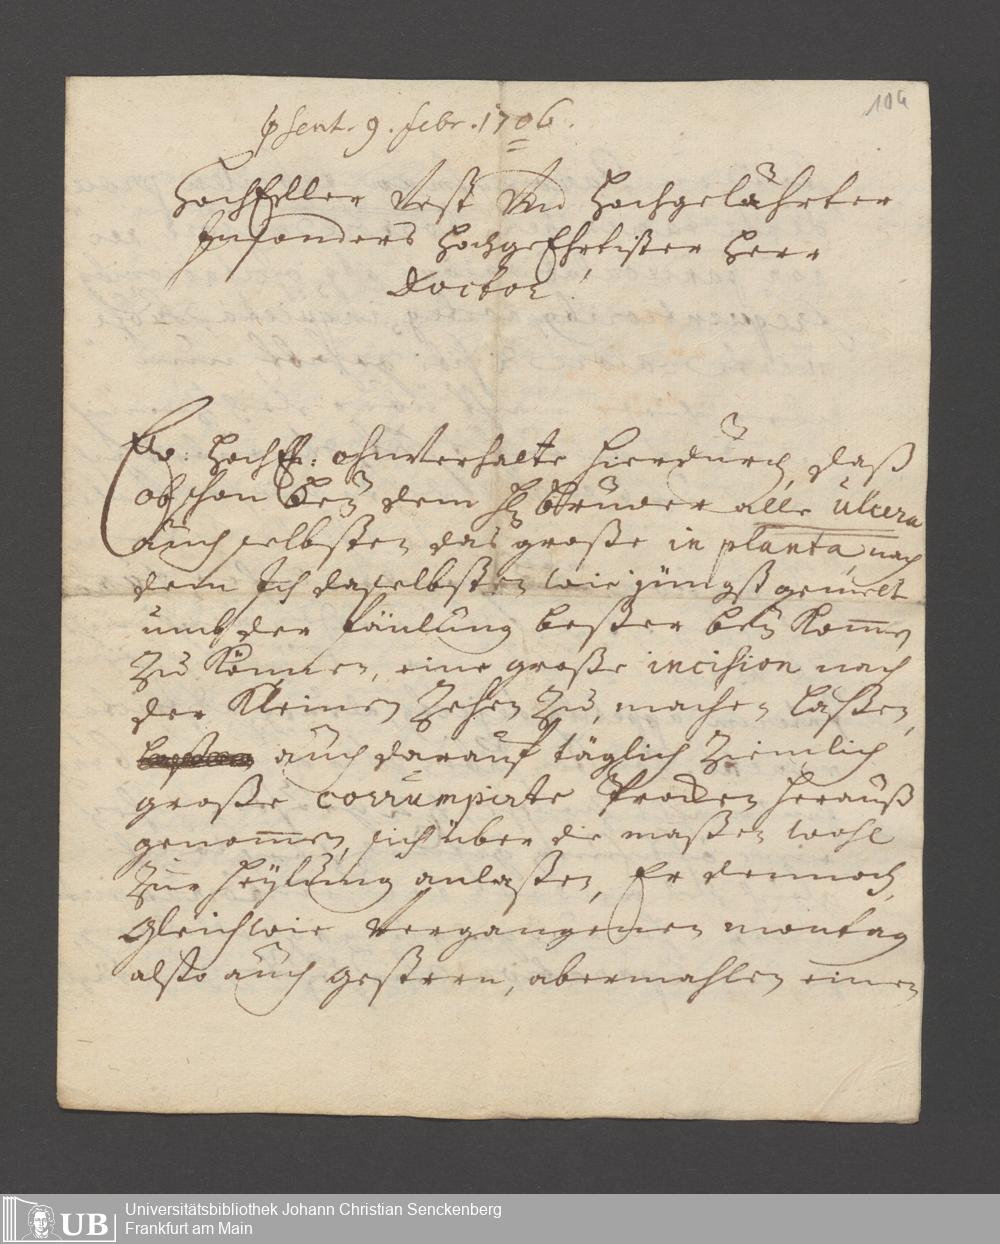 104
psent. 9. febr. 1706.
HochEdler Vest Und Hochgelährter
Insonders HochgeEhrtister Herr
Doctor
Ew: HochE: ohnverhalte hierdurch, daß
obschon beÿ dem H Bruder alle ulcera
auch selbsten das große in planta, nach
dem Ich daselbsten wie jüngst gemelt
umb der fäulung beßer beÿ Kommen
zu Können, eine große incision nach
der Kleinen Zehen zu, machen laßen,
auch darauf täglich ziemlich
große corrumpirte Brocken herauß
genommen, sich über die maßen wohl
zur heÿlung anlaßen, Er dennoch,
Gleichwie vergangenen montag
alßo auch gestern, abermahlen einen
UB
Universitätsbibliothek Johann Christian Senckenberg
Frankfurt am Main